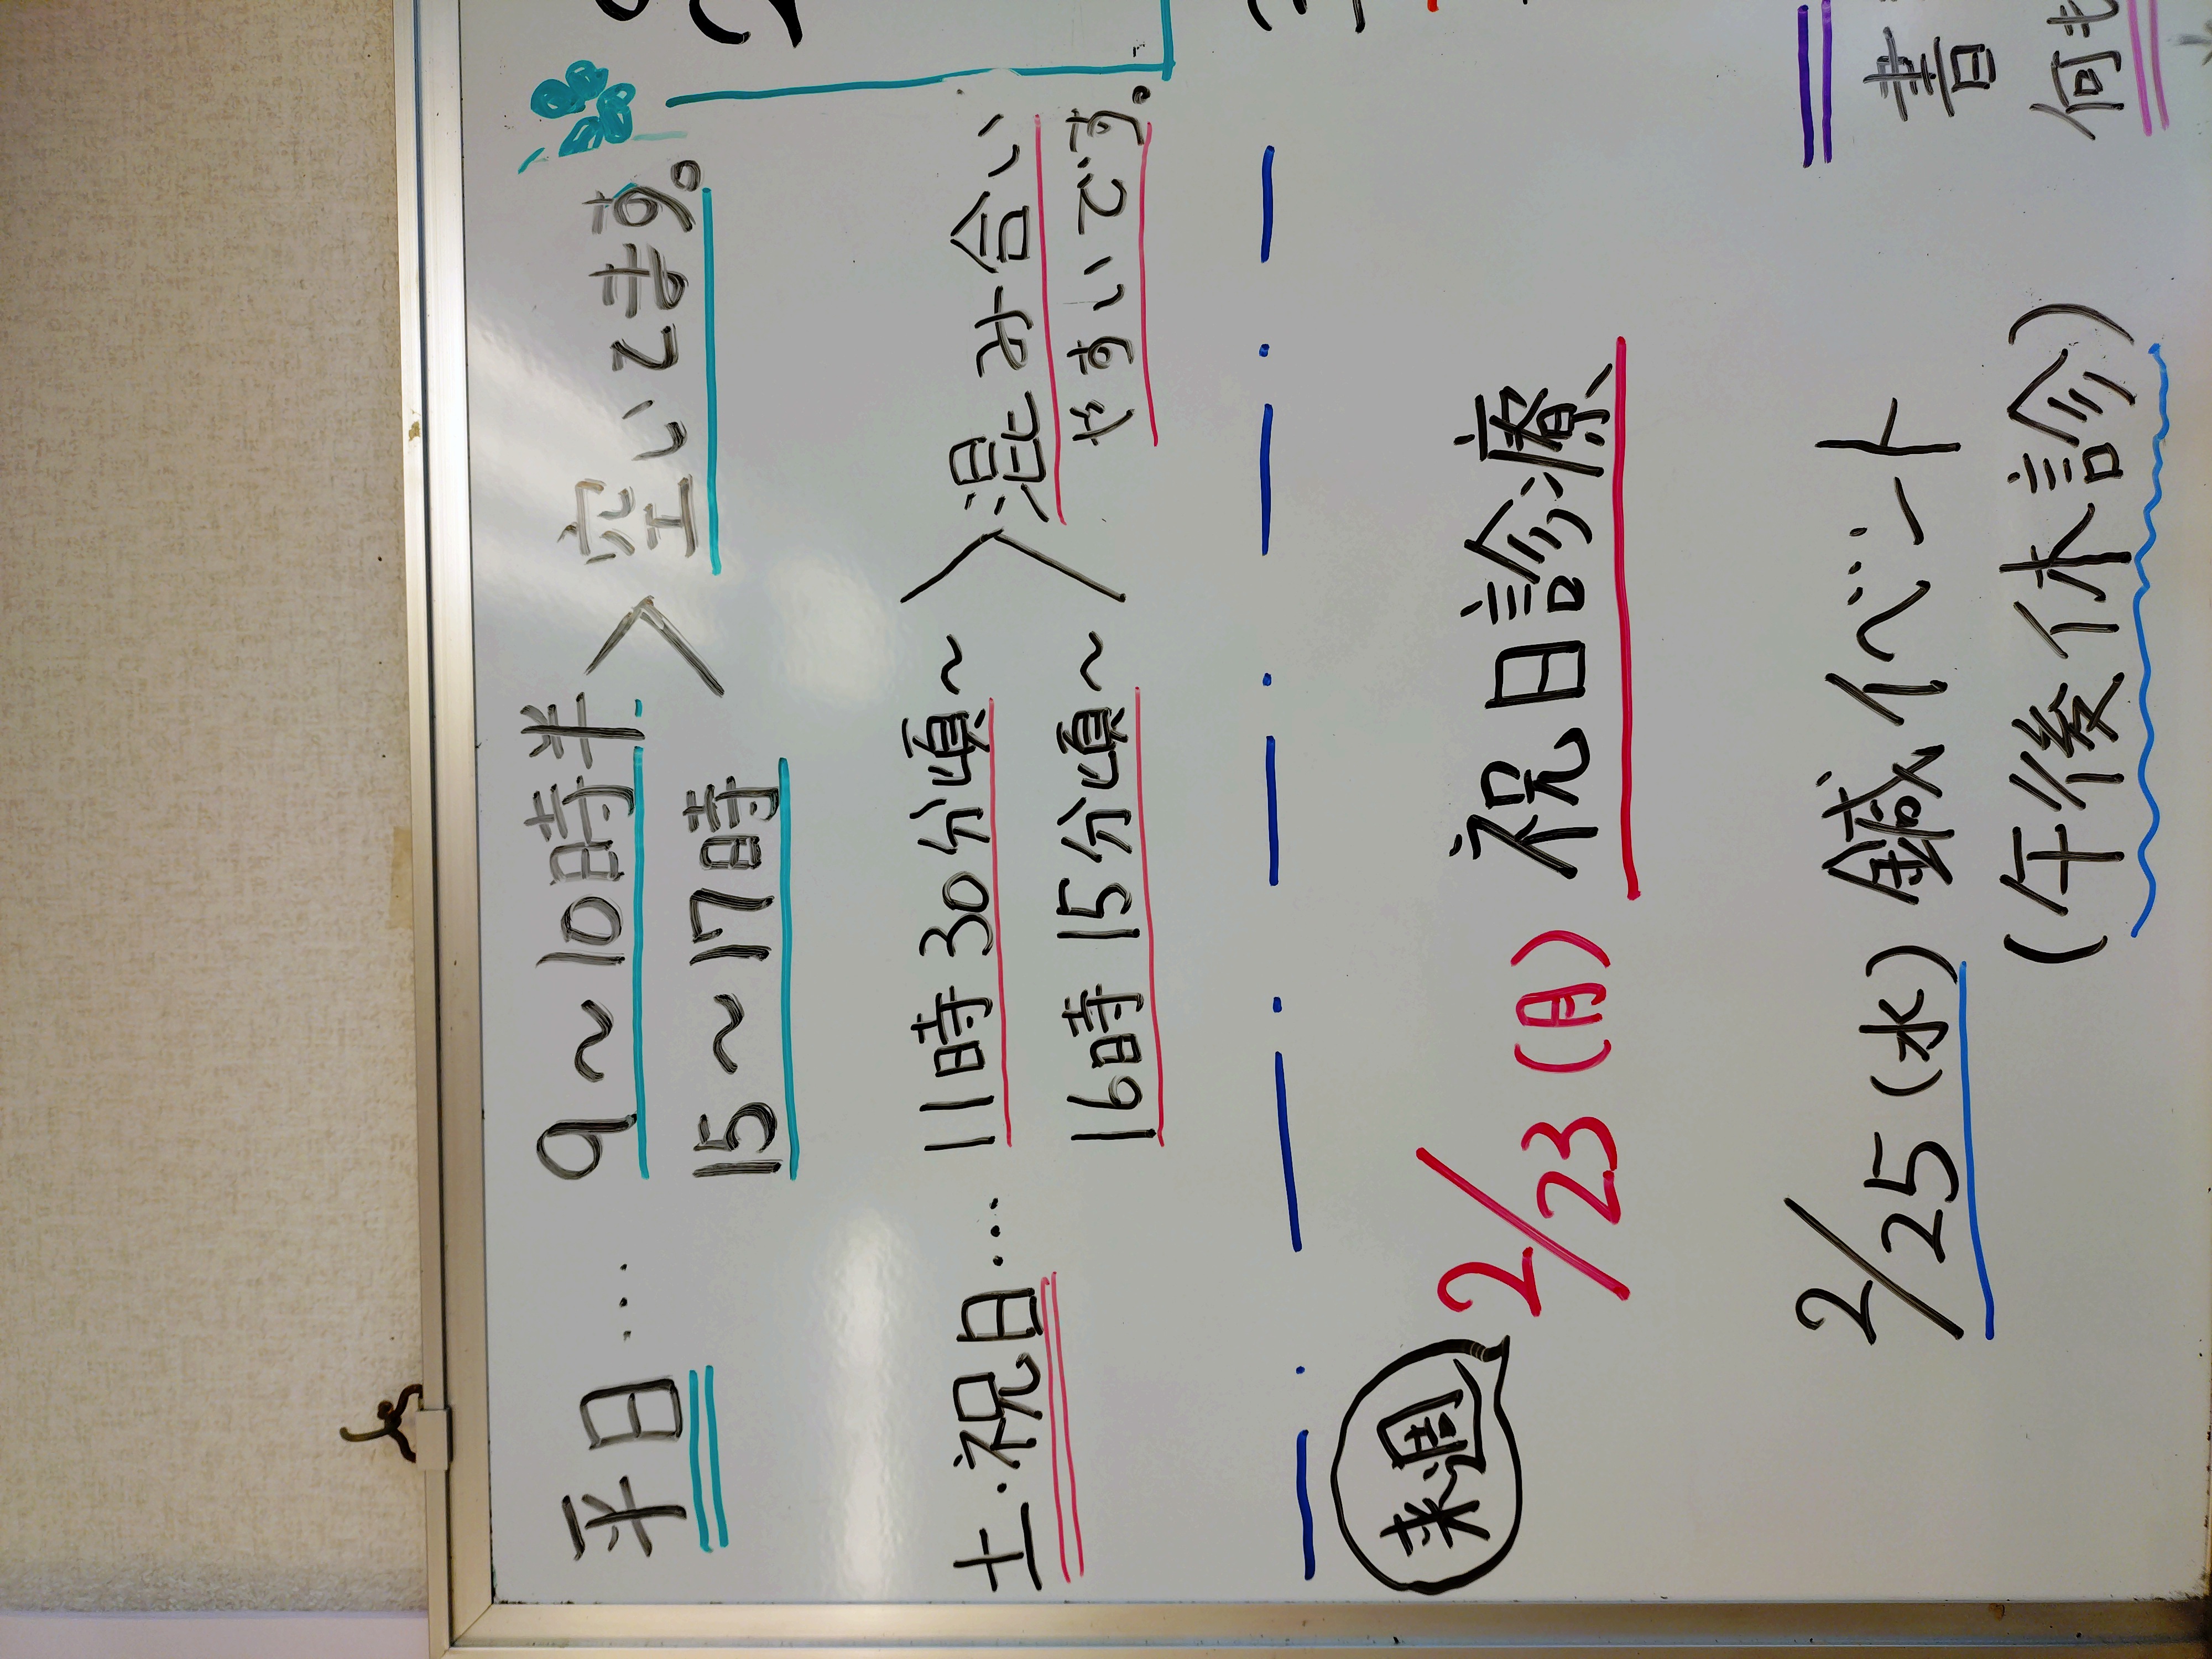 平日… 9～10時半 > 空いてます。
15～17時
土・祝日… 11時30分頃～ > 混み合い
16時15分頃～ やすいです。
来週
2/23(月) 祝日診療
2/25(水) 鍼イベント
(午後休診)
書
何も